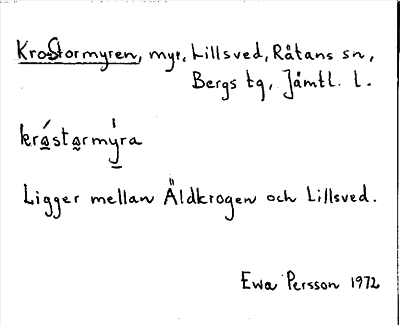 Krostormyren, myr, Lillsved, Råtans sn,
Bergs tg, Jämtl. l.
kråstarmýra
Ligger mellan Äldkrogen och Lillsved.
Ewa Persson 1972